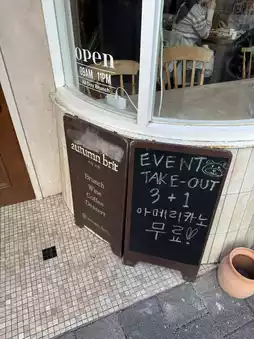 open
09AM 11PM
autumn brit
Brunch
Wine
Coffee
Dessert
EVENT
TAKE-OUT
3+1
아메리카노
무료!